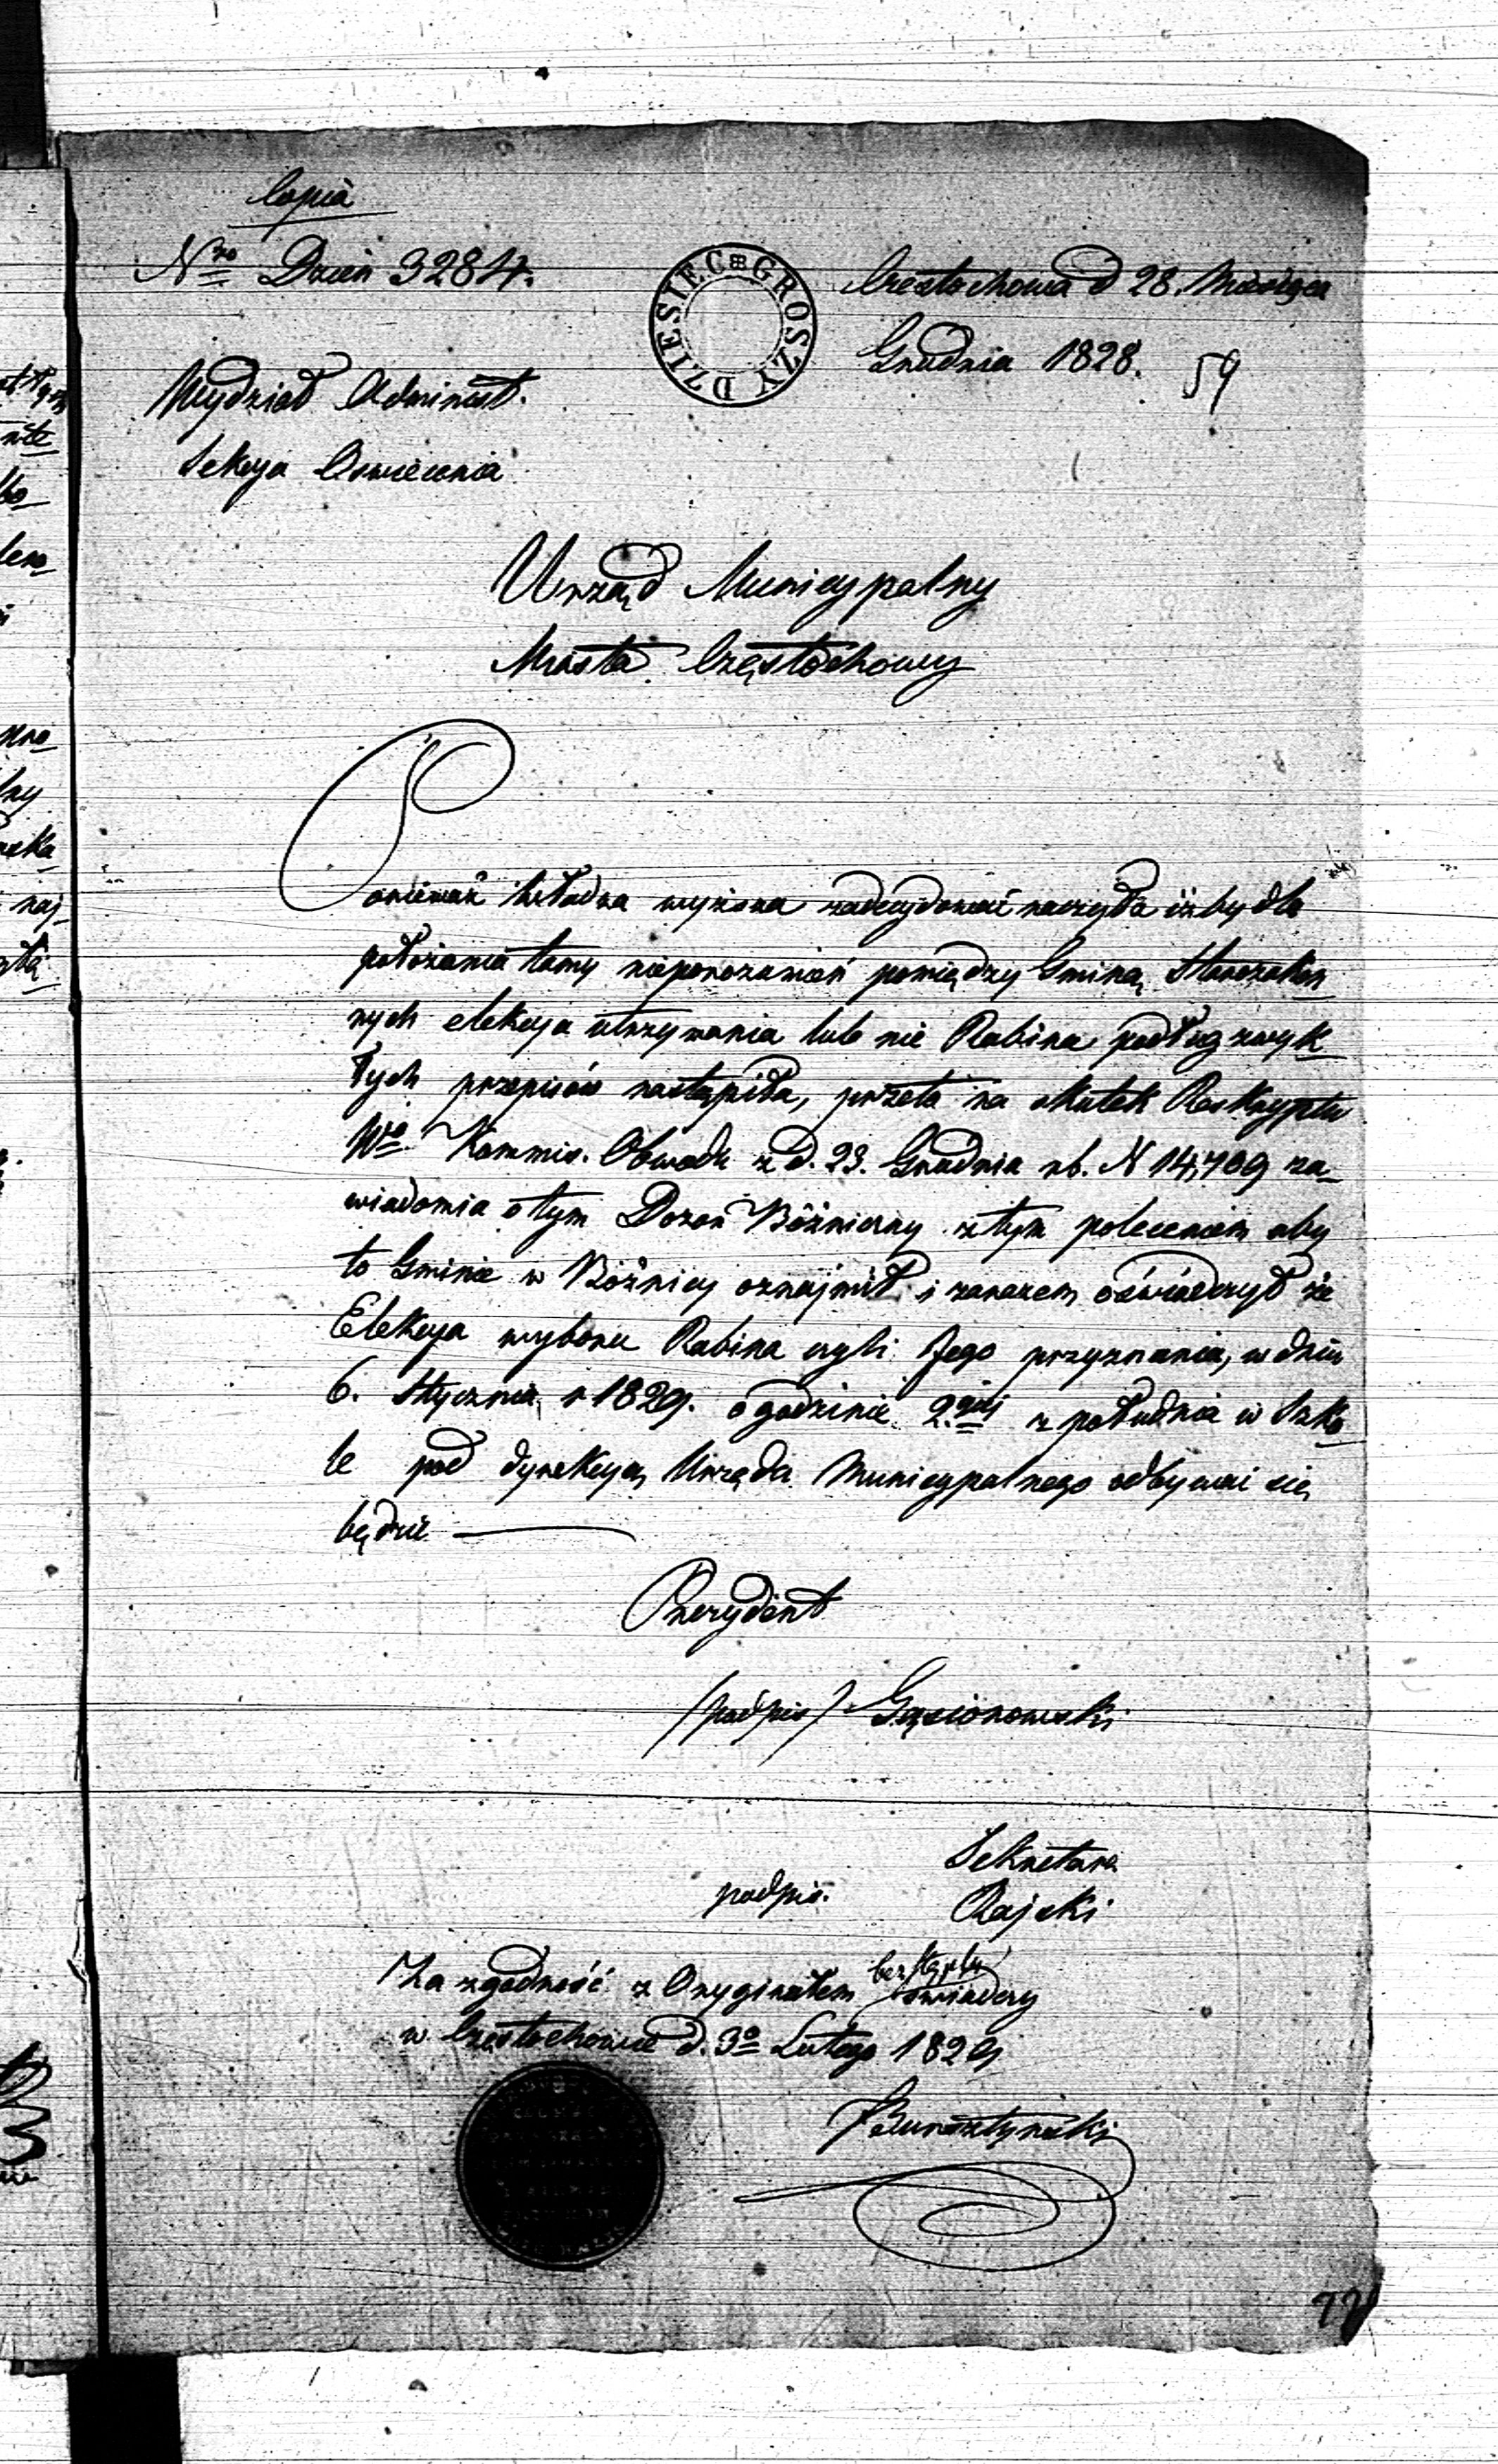 Copia
Nro Dzien 3284.
DZIESIEC GROSZY
Czestochowa d 28. Miesiąca
Grudnia 1828.
59
Wydział Administ.
Sekcya Oswiecenia
Urząd Municypalny
Miasta Częstochowy
Ponieważ Władza wyższa zadecydować raczyła iżby dla
położenia tamy nieporozumień pomiędzy Gminą Starozakon
nych elekcya utrzymania lub nie Rabina podług zwyk
łych przepisów nastąpiła, przeto na skutek Reskryptu
Wgo Kommis. Obwodu z d. 23. Grudnia rb. N 14,709 za
wiadomia o tym Dozór Bóżniczny z tym poleceniem aby
to Gminie w Bóżnicy oznajmił i zarazem oświadczył że
Elekcya wyboru Rabina czyli Jego przyznania, w dniu
6. Stycznia r 1829. o godzinie 2.giej z południa w Szko
le pod dyrekcyą Urzędu Municypalnego odbywać się
będzie
Prezydent
/podpis/ Gąsiorowski
Sekretarz
podpis. Rajski
bez stęplu
Za zgodność z Oryginałem świadczy
w Częstochowie d. 3o Lutego 1829